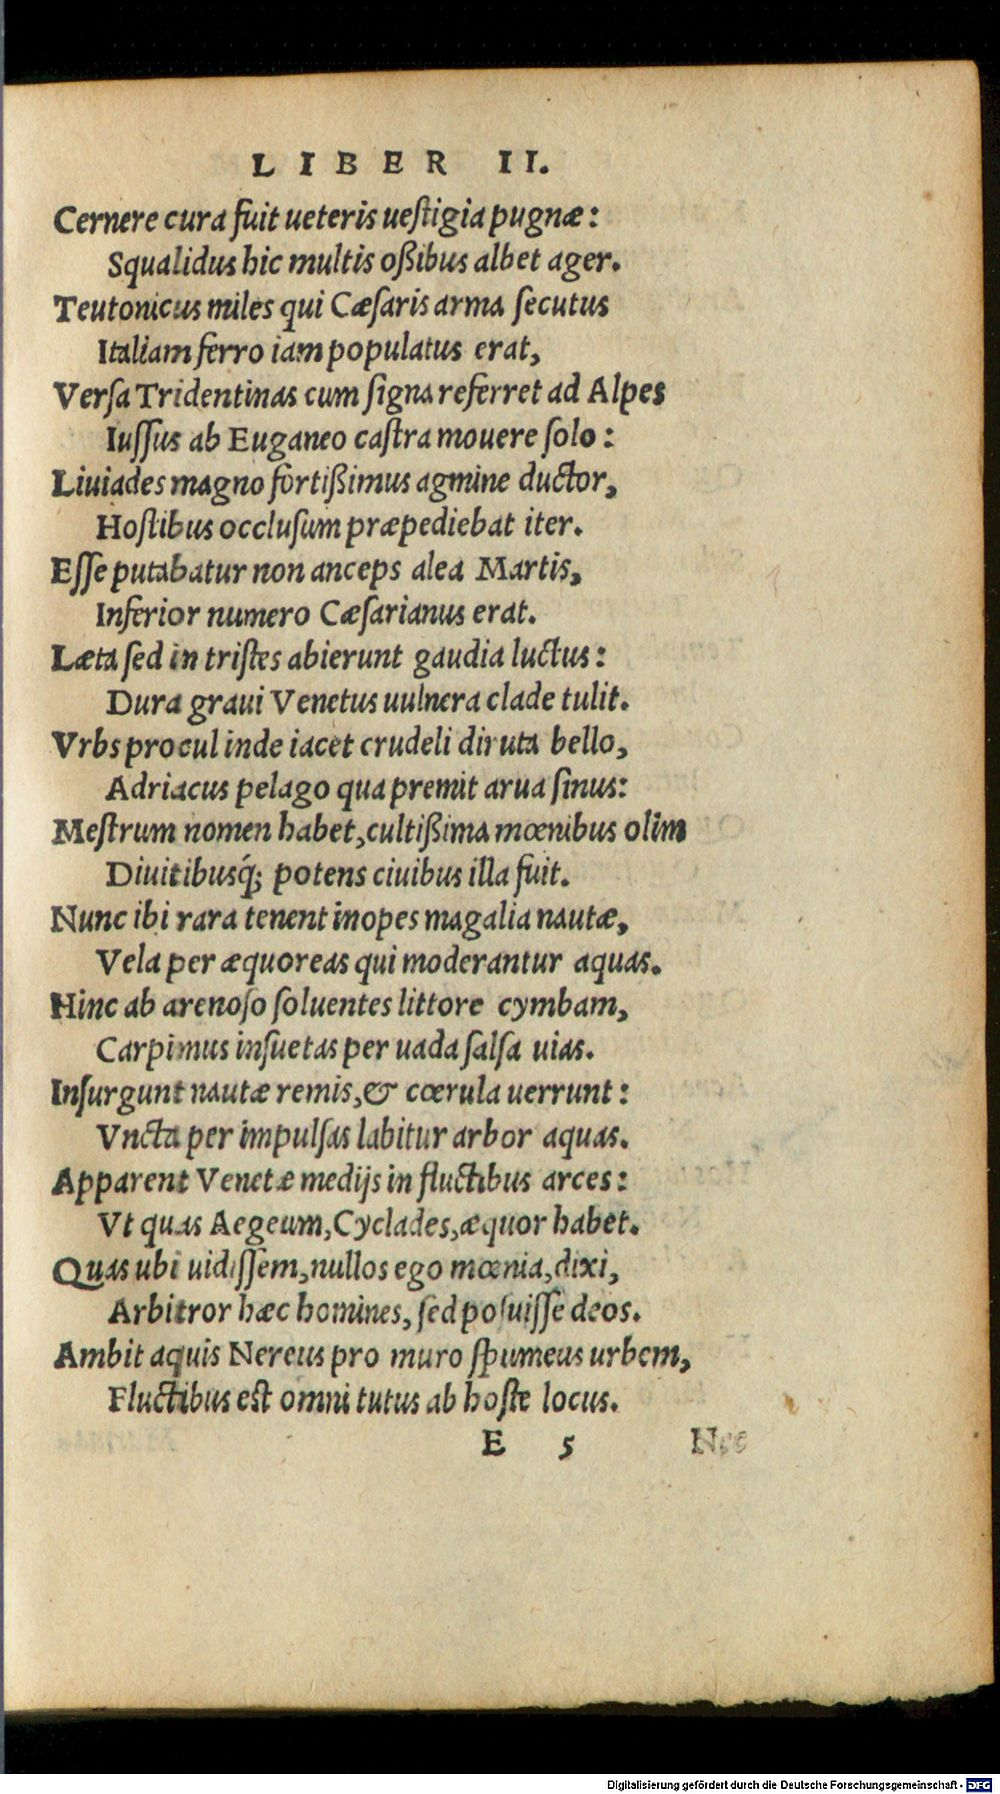 LIBER II.
Cernere cura fuit ueteris ueſtigia pugnæ:
Squalidus hic multis oßibus albet ager.
Teutonicus miles qui Cæſaris arma ſecutus
Italiam ferro iam populatus erat,
Verſa Tridentinas cum ſigna referret ad Alpes
Iuſſus ab Euganeo caſtra mouere ſolo:
Liuiades magno fortißimus agmine ductor,
Hoſtibus occluſum præpediebat iter.
Eſſe putabatur non anceps alea Martis,
Inferior numero Cæſarianus erat.
Læta ſed in triſtes abierunt gaudia luctus:
Dura graui Venetus uulnera clade tulit.
Vrbs procul inde iacet crudeli diruta bello,
Adriacus pelago qua premit arua ſinus:
Meſtrum nomen habet, cultißima mœnibus olim
Diuitibusq́; potens ciuibus illa fuit.
Nunc ibi rara tenent inopes magalia nautæ,
Vela per æquoreas qui moderantur aquas.
Hinc ab arenoſo ſoluentes littore cymbam,
Carpimus inſuetas per uada ſalſa uias.
Inſurgunt nautæ remis, & cœrula uerrunt:
Vncta per impulſas labitur arbor aquas.
Apparent Venetæ medijs in fluctibus arces:
Vt quas Aegeum, Cyclades, æquor habet.
Quas ubi uidiſſem, nullos ego mœnia, dixi,
Arbitror hæc homines, ſed poſuiſſe deos.
Ambit aquis Nereus pro muro ſpumeus urbem,
Fluctibus eſt omni tutus ab hoſte locus.
E 5 Nec
Digitalisierung gefördert durch die Deutsche Forschungsgemeinschaft - DFG